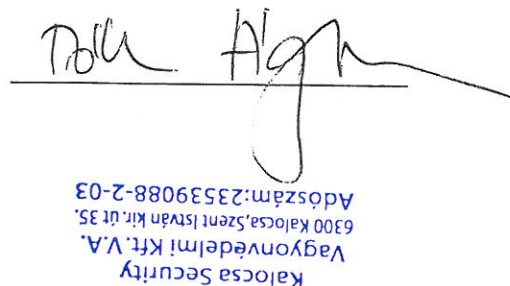 Tóth
Kalocsa Security
Vagyonvédelmi Kft.V.A.
6300 Kalocsa,Szent István kir.út 35.
Adószám:23539088-2-03